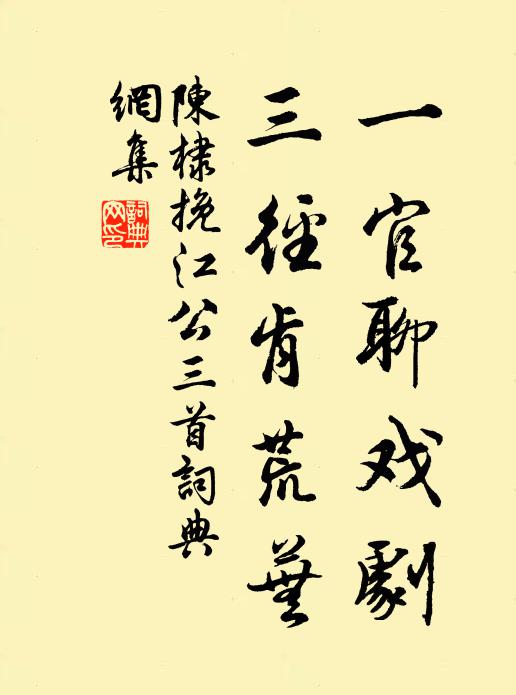 一官聊戏劇
三徑肯荒蕪
陳棣挽江公三首詞典
網集
詞典
网印